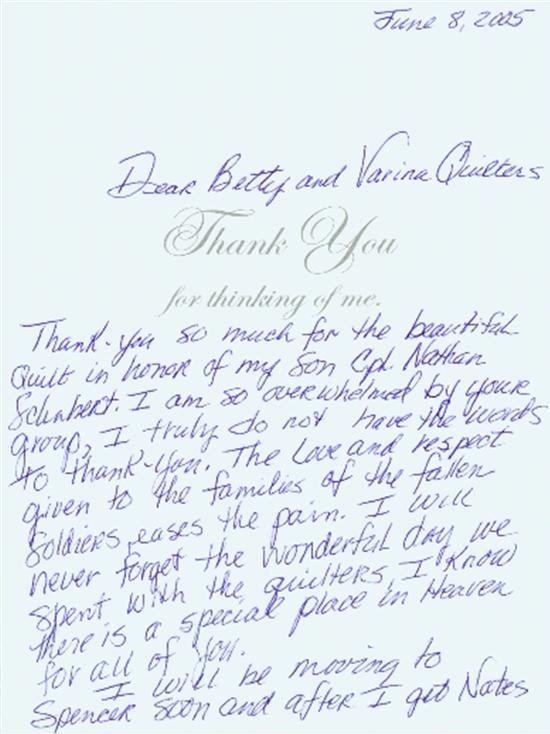 June 8, 2005
Dear Betty and Varina Quilters
Thank You
for thinking of me.
Thank-you so much for the beautiful
Quilt in honor of my Son Cpl. Nathan
Schubert. I am so overwhelmed by your
group, I truly do not have the words
to thank-you. The Love and respect
given to the families of the fallen
Soldiers, eases the pain. I will
never forget the wonderful day we
spent with the quilters, I know
there is a special place in Heaven
for all of you.
I will be moving to
Spencer soon and after I get Nates